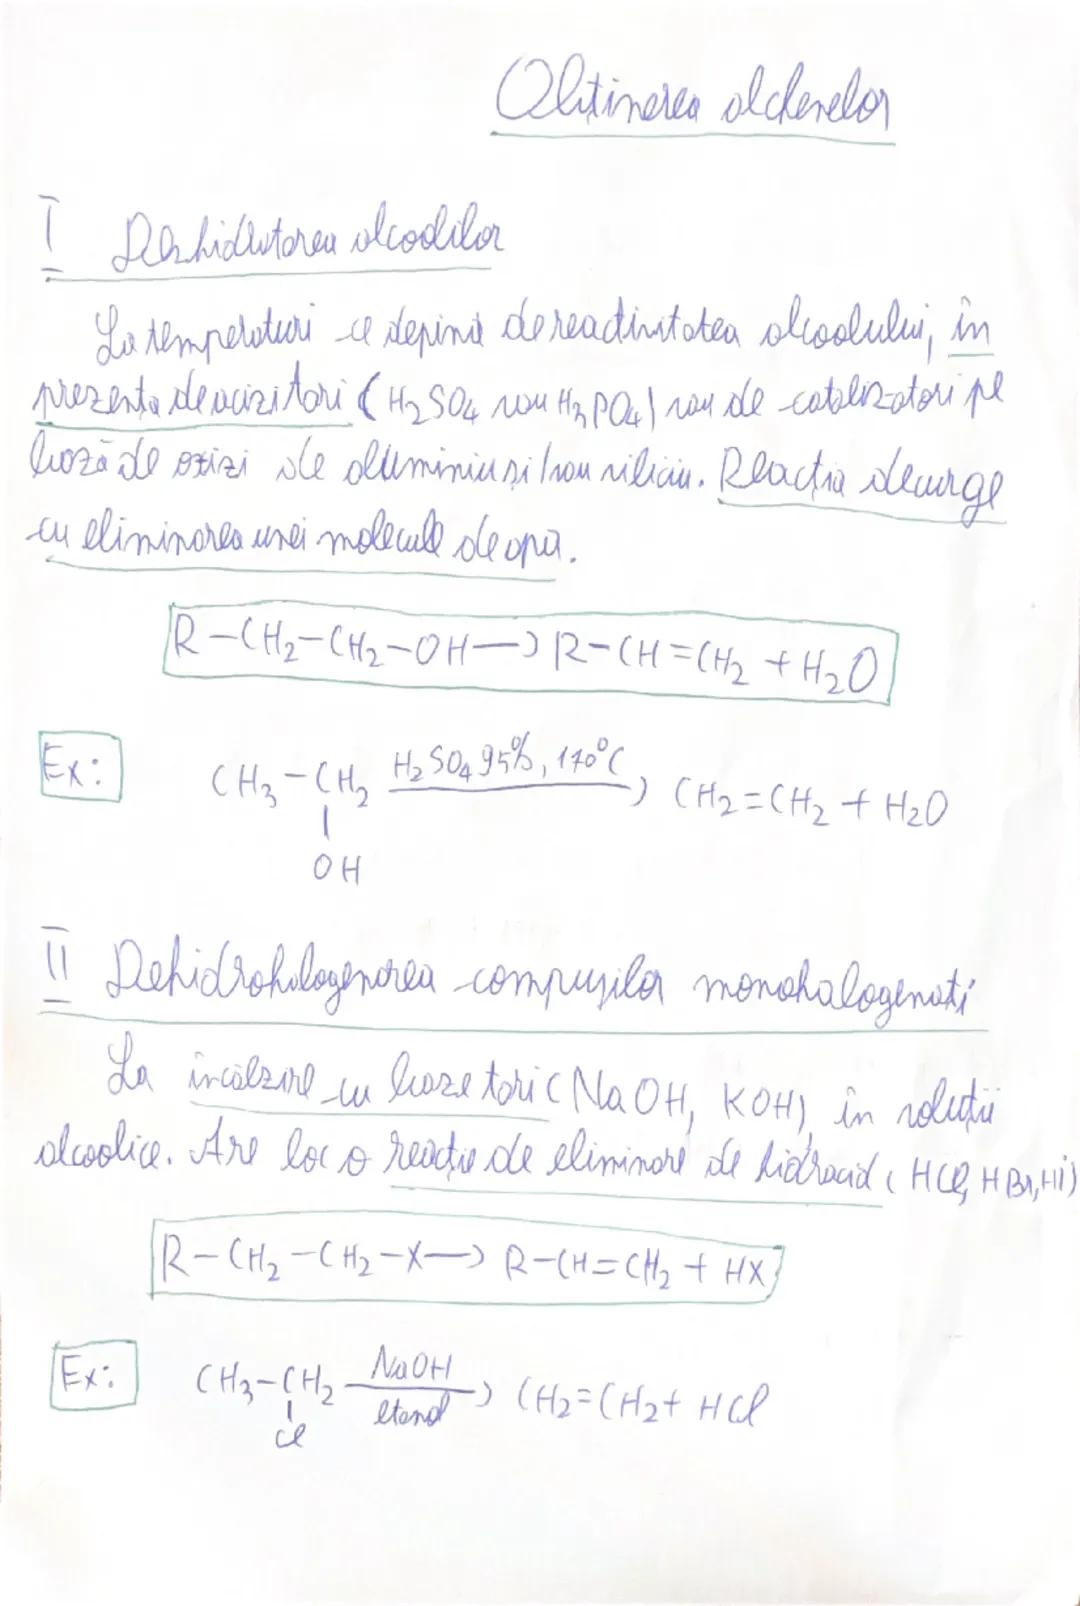 Obtinerea alchenelor
I Deshidratarea alcoolilor
La temperaturi ce depind de reactivitatea alcoolului, în
prezenta de acizi tari (H₂SO₄ sau H₃PO₄) sau de catalizatori pe
bază de oxizi de aluminiu si/sau siliciu. Reactia decurge
cu eliminarea unei molecule de apa.
R-CH₂-CH₂-OH→R-CH=CH₂ + H₂O
Ex:
CH₃-CH₂ H₂SO₄ 95%, 170°C → CH₂=CH₂ + H₂O
|
OH
II Dehidrohalogenarea compușilor monohalogenati
La încălzire cu baze tari (NaOH, KOH) în solutii
alcoolice. Are loc o reactie de eliminare de hidracid (HCl, HBr, Hi)
R-CH₂-CH₂-X→R-CH=CH₂ + HX
Ex:
CH₃-CH₂ NaOH → CH₂=CH₂+ HCl
| etanol
Cl